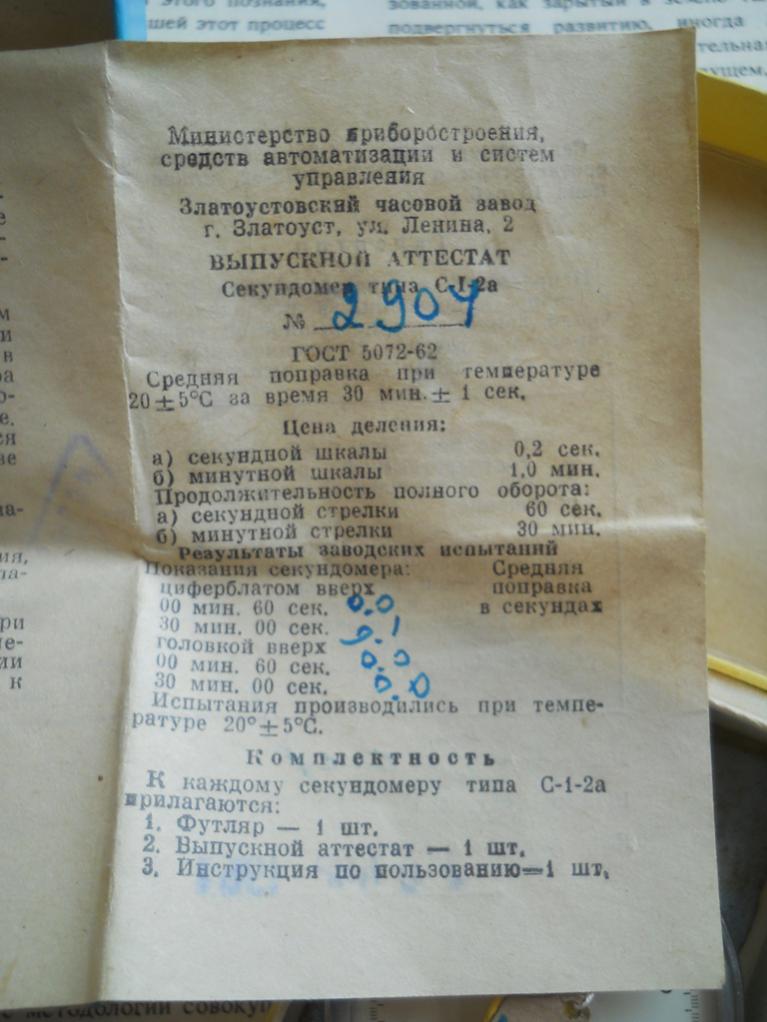 этого познания,
шей этот процесс
зованной, как зарытый в землю
подвергнуться развитию, иногда
Министерство приборостроения,
средств автоматизации и систем
управления
Златоустовский часовой завод
г. Златоуст, ул. Ленина, 2
ВЫПУСКНОЙ АТТЕСТАТ
Секундомер типа С-1-2а
№ 2904
ГОСТ 5072-62
Средняя поправка при температуре
20±5°С за время 30 мин.± 1 сек.
Цена деления:
а) секундной шкалы 0,2 сек.
б) минутной шкалы 1,0 мин.
Продолжительность полного оборота:
а) секундной стрелки 60 сек.
б) минутной стрелки 30 мин.
Результаты заводских испытаний
Показания секундомера: Средняя
циферблатом вверх поправка
00 мин. 60 сек. 0.0 в секундах
30 мин. 00 сек. 0.1
головкой вверх
00 мин. 60 сек. 0.0
30 мин. 00 сек. 0.0
Испытания производились при темпе-
ратуре 20°±5°С.
Комплектность
К каждому секундомеру типа С-1-2а
прилагаются:
1. Футляр — 1 шт.
2. Выпускной аттестат — 1 шт.
3. Инструкция по пользованию—1 шт.
методологии совокуп